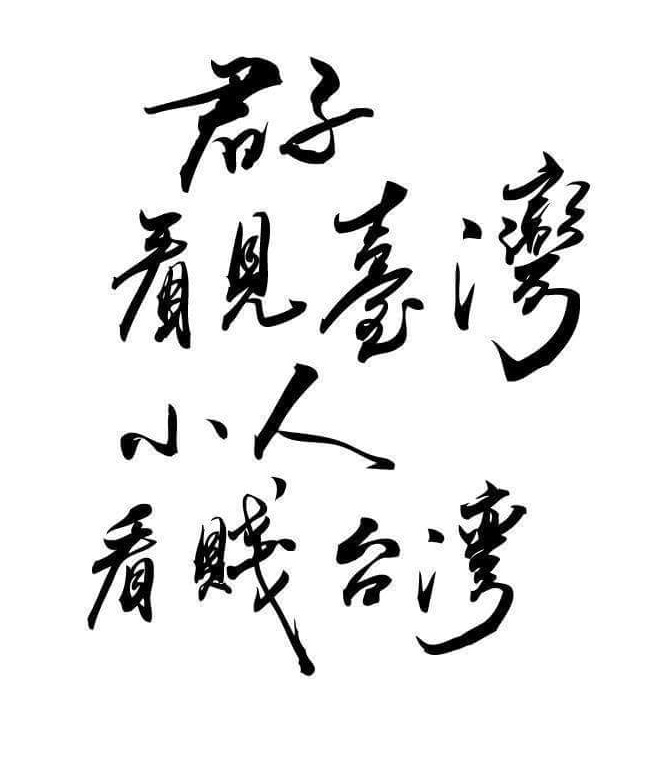 君子
看見臺灣
小人
看賤台湾